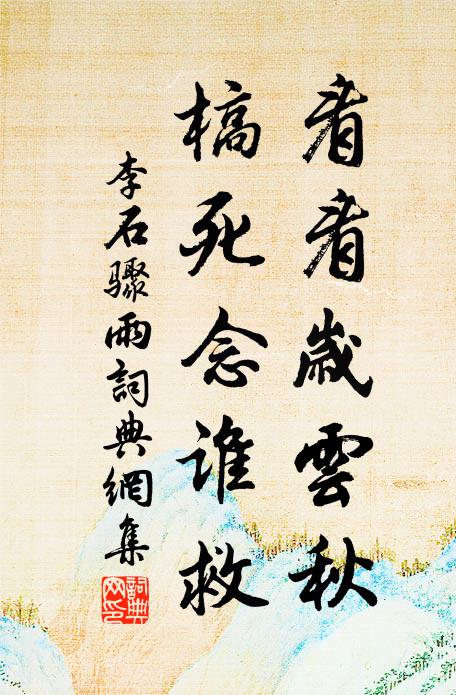 看看歲雲秋
槁死念誰救
李石驟雨詞典網集
詞典網印